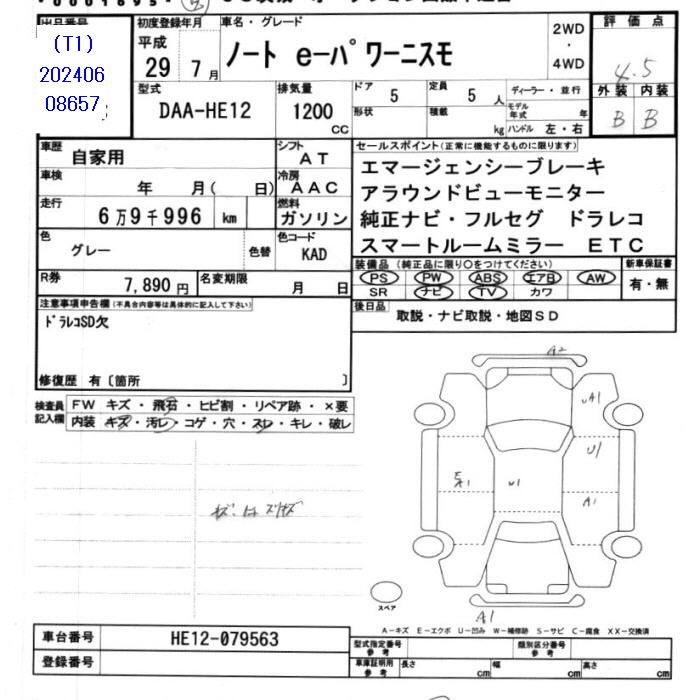 出品番号
(T1)
202406
08657
初度登録年月
平成
29年7月
車名・グレード
ノート e-パワーニスモ
2WD
・
4WD
評価点
4.5
外装 内装
B B
型式
DAA-HE12
排気量
1200
cc
ドア 5
定員 5人
形状
積載 kg
ディーラー・並行
モデル年式 年
ハンドル 左・右
車歴
自家用
シフト
AT
車検
年 月( 日)
冷房
AAC
走行
6万9千996 km
燃料
ガソリン
色
グレー
色替
色コード
KAD
R券
7,890円
名変期限
月 日
セールスポイント(正常に機能するものに限ります)
エマージェンシーブレーキ
アラウンドビューモニター
純正ナビ・フルセグ ドラレコ
スマートルームミラー ETC
装備品(純正品に限り○をつけてください)
PS PW ABS エアB AW
SR ナビ TV カワ
新車保証書
有・無
後日品
取説・ナビ取説・地図SD
注意事項申告欄(不具合内容等は具体的に記入して下さい)
ドラレコSD欠
修復歴 有〔箇所 〕
検査員
記入欄
FW キズ・飛石・ヒビ割・リペア跡・×要
内装 キズ・汚レ・コゲ・穴・スレ・キレ・破レ
A2
A1
U1
A1
U1
A1
スペア
A-キズ E-エクボ U-凹み W-補修跡 S-サビ C-腐食 XX-交換済
車台番号
HE12-079563
登録番号
型式指定番号
参考
類別区分番号
参考
車庫証明用
参考
長さ cm
幅 cm
高さ cm